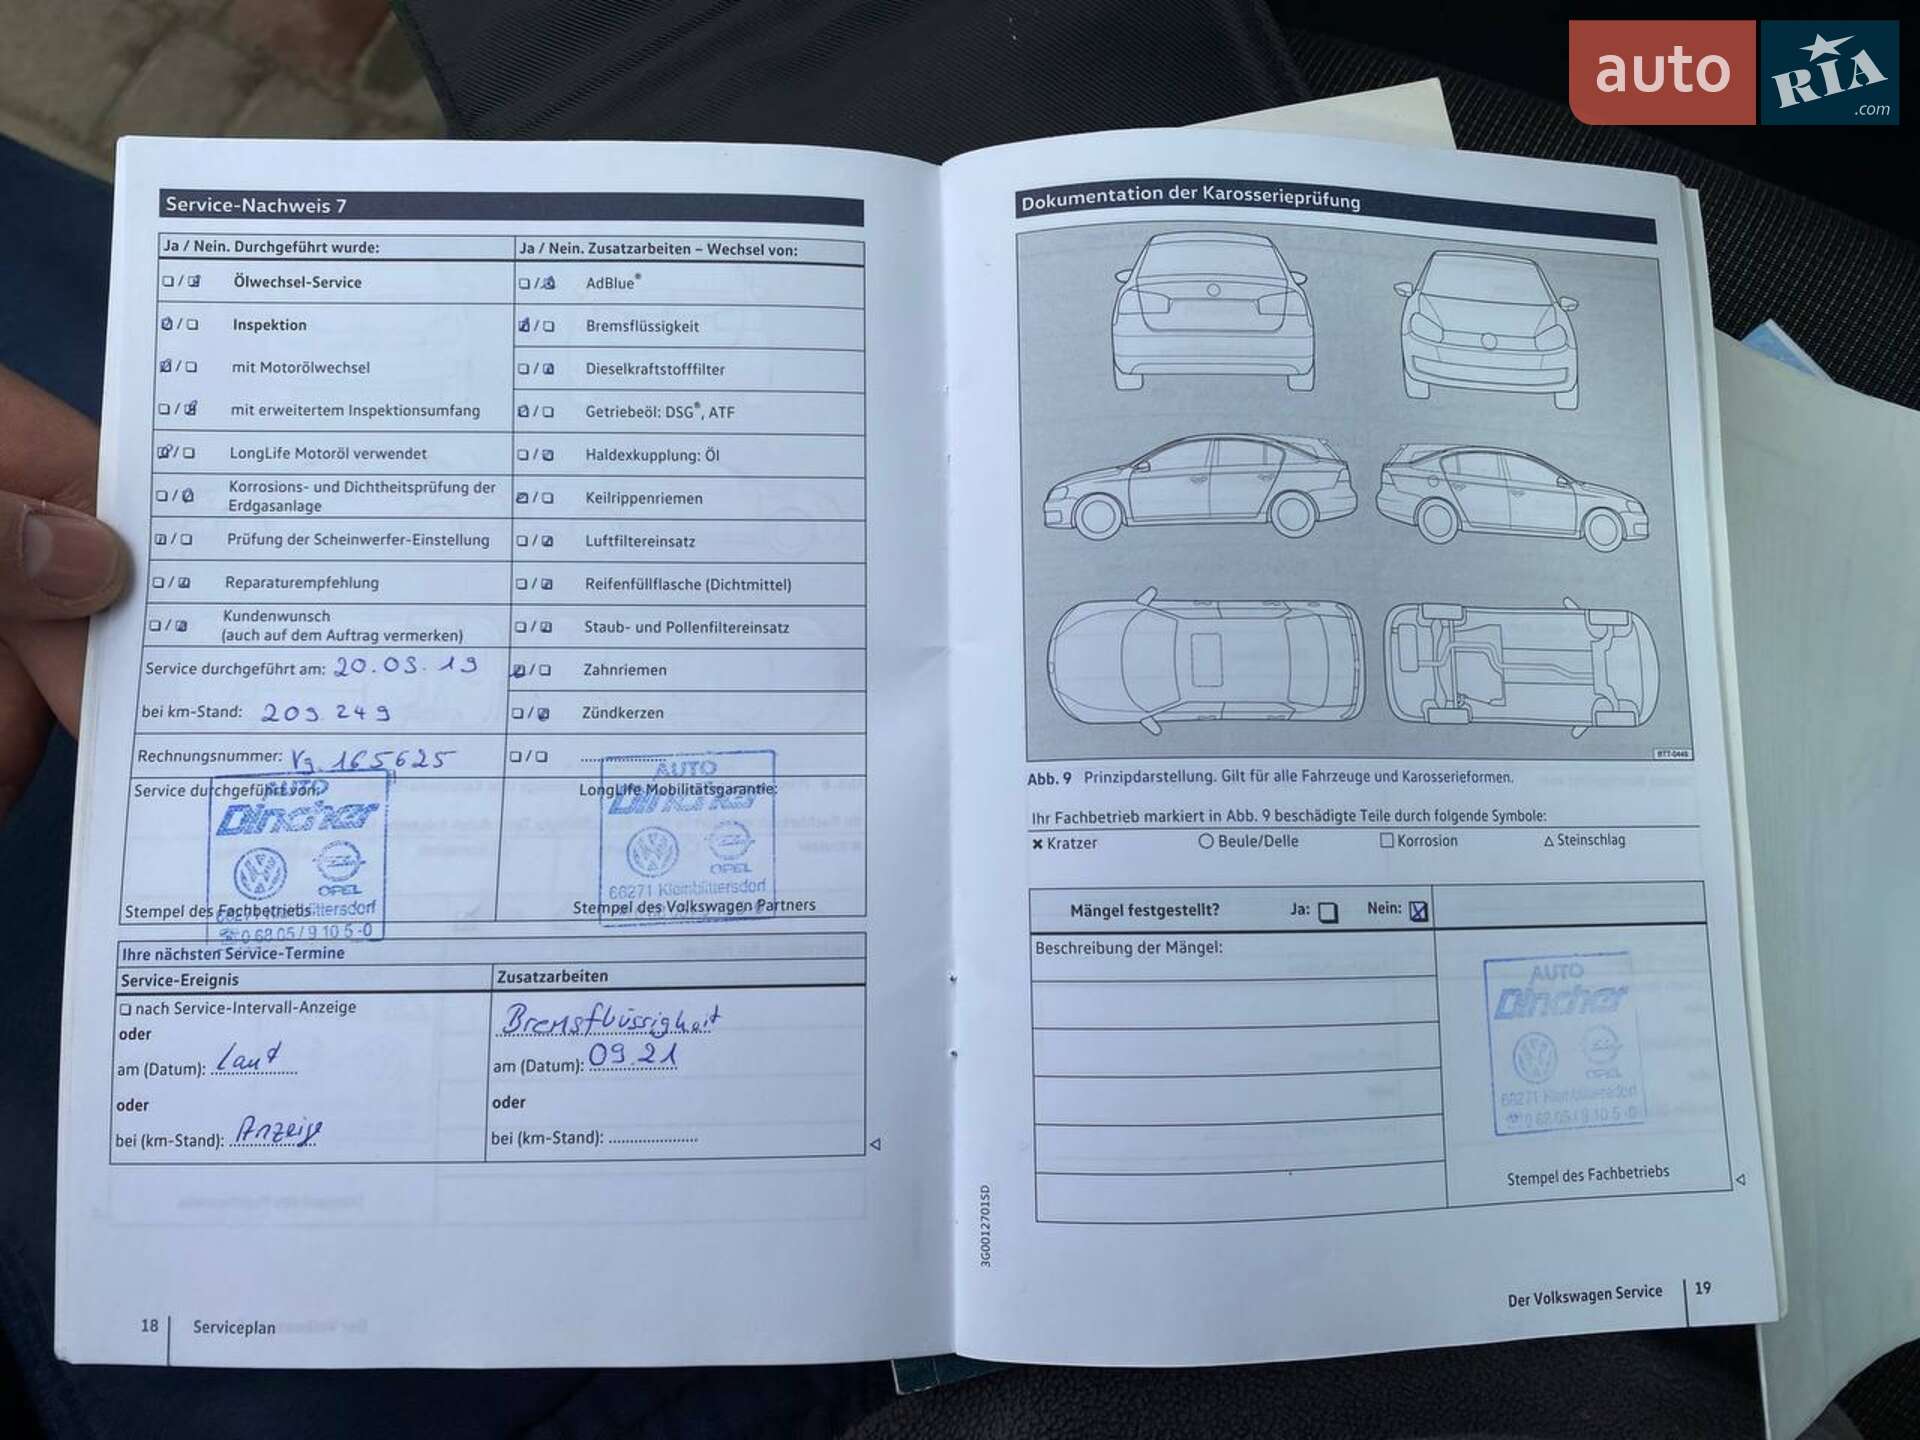 auto RIA .com
Service-Nachweis 7
Ja / Nein. Durchgeführt wurde:
Ja / Nein. Zusatzarbeiten – Wechsel von:
Ölwechsel-Service
AdBlue®
Inspektion
Bremsflüssigkeit
mit Motorölwechsel
Dieselkraftstofffilter
mit erweitertem Inspektionsumfang
Getriebeöl: DSG®, ATF
LongLife Motoröl verwendet
Haldexkupplung: Öl
Korrosions- und Dichtheitsprüfung der
Erdgasanlage
Keilrippenriemen
Prüfung der Scheinwerfer-Einstellung
Luftfiltereinsatz
Reparaturempfehlung
Reifenfüllflasche (Dichtmittel)
Kundenwunsch
(auch auf dem Auftrag vermerken)
Staub- und Pollenfiltereinsatz
Service durchgeführt am: 20.09.19
Zahnriemen
bei km-Stand: 209.249
Zündkerzen
Rechnungsnummer: Vg. 165625
Service durchgeführt von:
LongLife Mobilitätsgarantie:
AUTO
Dincher
OPEL
☎ 0 68 05 / 9 10 5 -0
AUTO
Dincher
OPEL
66271 Kleinblittersdorf
Stempel des Fachbetriebs
Stempel des Volkswagen Partners
Ihre nächsten Service-Termine
Service-Ereignis
Zusatzarbeiten
nach Service-Intervall-Anzeige
oder
am (Datum): Laut
oder
bei (km-Stand): Anzeige
Bremsflüssigkeit
am (Datum): 09.21
oder
bei (km-Stand):
18 Serviceplan
Dokumentation der Karosserieprüfung
BTT-0446
Abb. 9 Prinzipdarstellung. Gilt für alle Fahrzeuge und Karosserieformen.
Ihr Fachbetrieb markiert in Abb. 9 beschädigte Teile durch folgende Symbole:
✖ Kratzer ○ Beule/Delle □ Korrosion △ Steinschlag
Mängel festgestellt? Ja: Nein:
Beschreibung der Mängel:
AUTO
Dincher
OPEL
66271 Kleinblittersdorf
☎ 0 68 05 / 9 10 5 -0
Stempel des Fachbetriebs
3G0012701SD
Der Volkswagen Service 19